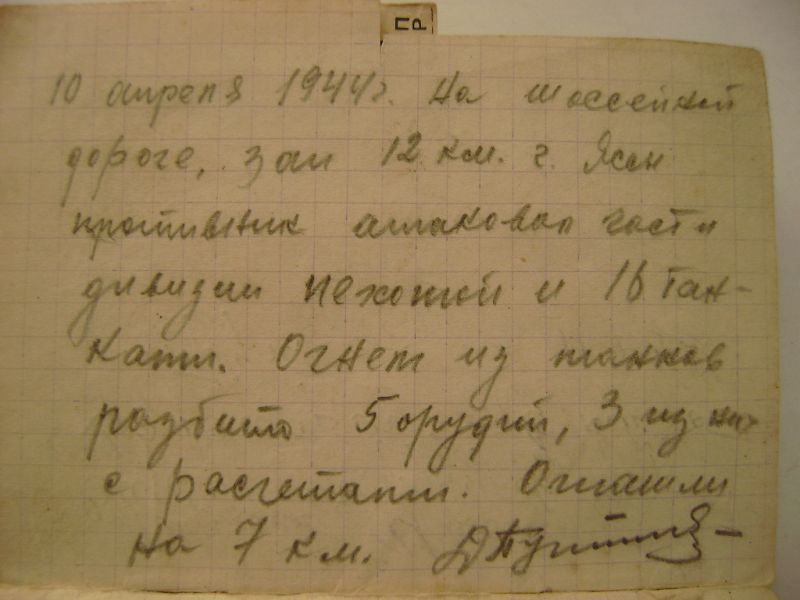 П
Р
10 апреля 1944г. на шоссейной
дороге, зап 12 км. г. Яссы
противник атаковал части
дивизии пехотой и 16 тан-
ками. Огнем из танков
разбито 5 орудий, 3 из них
с расчетами. Отошли
на 7 км.